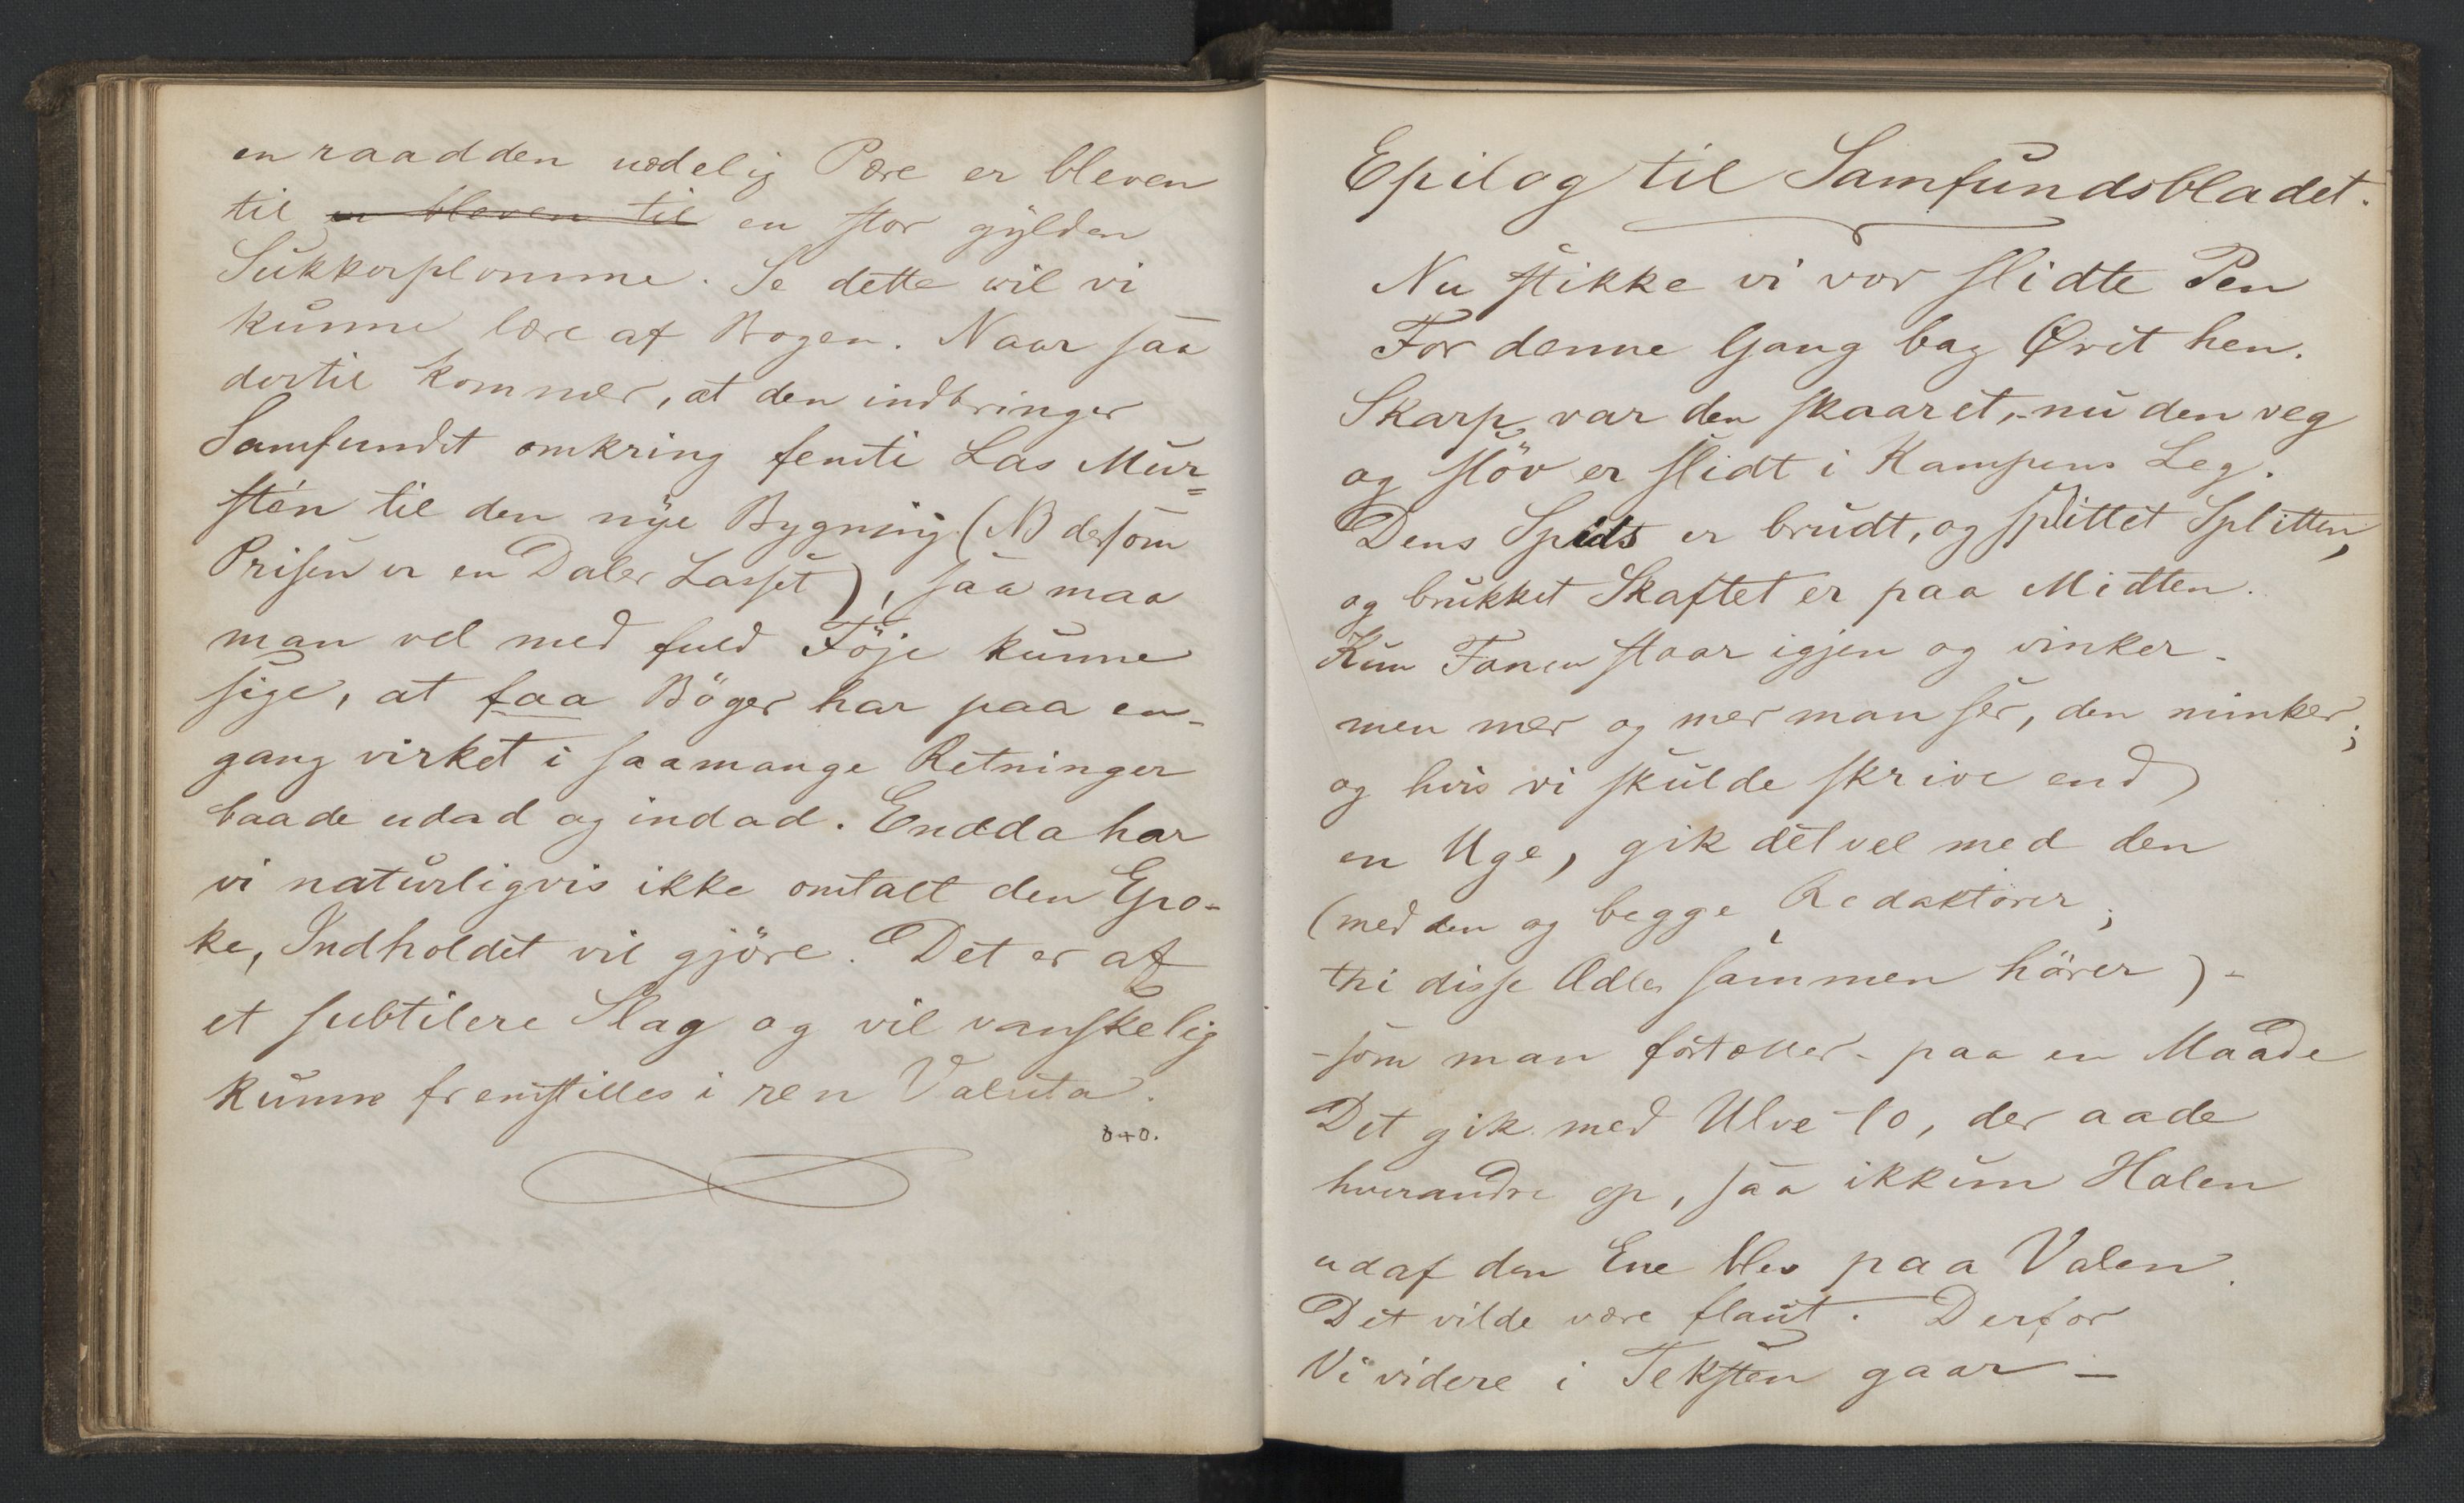 en raadden uædelig Pære er bleven
til er bleven til en stor gylden
Sukkerplomme. Se dette vil vi
kunne lære af Bogen. Naar saa
dertil kommer, at den indbringer
Samfundet omkring femti Las Mur=
stén til den nye Bygning (NB dersom
Prisen er en Daler Lasset), saa maa
man vel med fuld Föje kunne
sige, at faa Böger har paa en-
gang virket i saamange Retninger
baade udad og indad. Endda har
vi naturligvis ikke omtalt den Epo-
ke, Indholdet vil gjöre. Det er af
et subtilere Slag og vil vanskelig
kunne fremstilles i ren Valuta.
8+0.
Epilog til Samfundsbladet.
Nu stikke vi vor slidte Pen
For denne Gang bag Øret hen.
Skarp var den skaaret, - nu den veg
og slöv er slidt i Kampens Leg.
Dens Spids er brudt, og splittet Splitten,
og brukket Skaftet er paa Midten.
Kun Fanen staar igjen og vinker -
men mer og mer man ser, den minker;
og hvis vi skulde skrive end
en Uge, gik det vel med den
(med den og begge Redaktörer;
thi disse Ædle sammen hörer) -
- som man fortæller - paa en Maade
Det gik med Ulve to, der aade
hverandre op, saa ikkun Halen
udaf den Ene blev paa Valen.
Det vilde være flaut. Derfor
Vi videre i Teksten gaar —